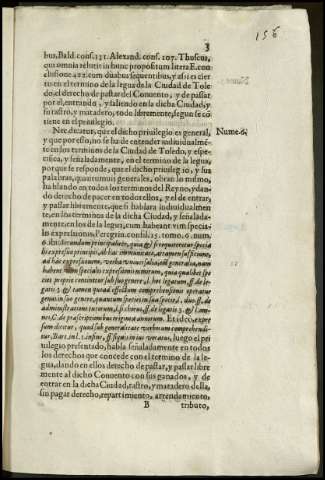 156
3
bus, Bald. cons. 131. Alexand. cons. 107. Thuscus,
qui omnia retulit in hunc propositum litera E. con
clusione 422. cum duabus sequentibus, y assi es cier
to en el termino de la legua de la Ciudad de Tole
do el derecho de pastar del Convento, y de passar
por el, entrando, y saliendo en la dicha Ciudad, y
su rastro, y matadero, todo libremente, segun se cō
tiene en el privilegio.
Nec dicatur, que el dicho privilegio es general,
Nume. 6.
y que por esso, no se ha de entender individualmē
te en los terminos de la Ciudad de Toledo, y espe-
cifica, y señaladamente, en el termino de la legua,
por que se responde, que el dicho privilegio, y sus
palabras, quantumuis generales, obran lo mismo,
hablando en todos los terminos del Reyno, y dan-
do derecho de pacer en todos ellos, y el de entrar,
y pastar libremente, que si hablara individualmen
te, en los terminos de la dicha Ciudad, y señalada-
mente, en los de la legua, cum habeant vim specia-
lis expressionis, Peregrin. consil. 25. tomo. 6. num.
6. ibi: Secundum principaliter, quia & si requireretur specia
lis expressio principis, ad hæc
ad hæc expressionem, verba
habent vim specialis expressionis omnium, quia qualibet spe
cies propriè continetur sub suo genere, l. hoc legatum, ff. de le-
gatis 3. & tantum quoad effectum comprehensionis operatur
genus in suo genere, quantum species in sua specie, l. duo. ff. de
administratione tutorum, l. si chorus, ff. de legatis 3. &
C. de præscriptione longi
sum dicitur, quod sub generalitate verborum comprehendi-
tur, Bart. in l. 1. ff. si quis in ius vocatus, luego el pri
uilegio presentado, habla señaladamente en todos
los derechos que concede con el termino de la le-
gua, dando en ellos derecho de pastar, y pastar libre
mente al dicho Convento con sus ganados, y de
entrar en la dicha Ciudad, rastro, y matadero della,
sin pagar derecho, repartimiento, arrendamiento,
B tributo,